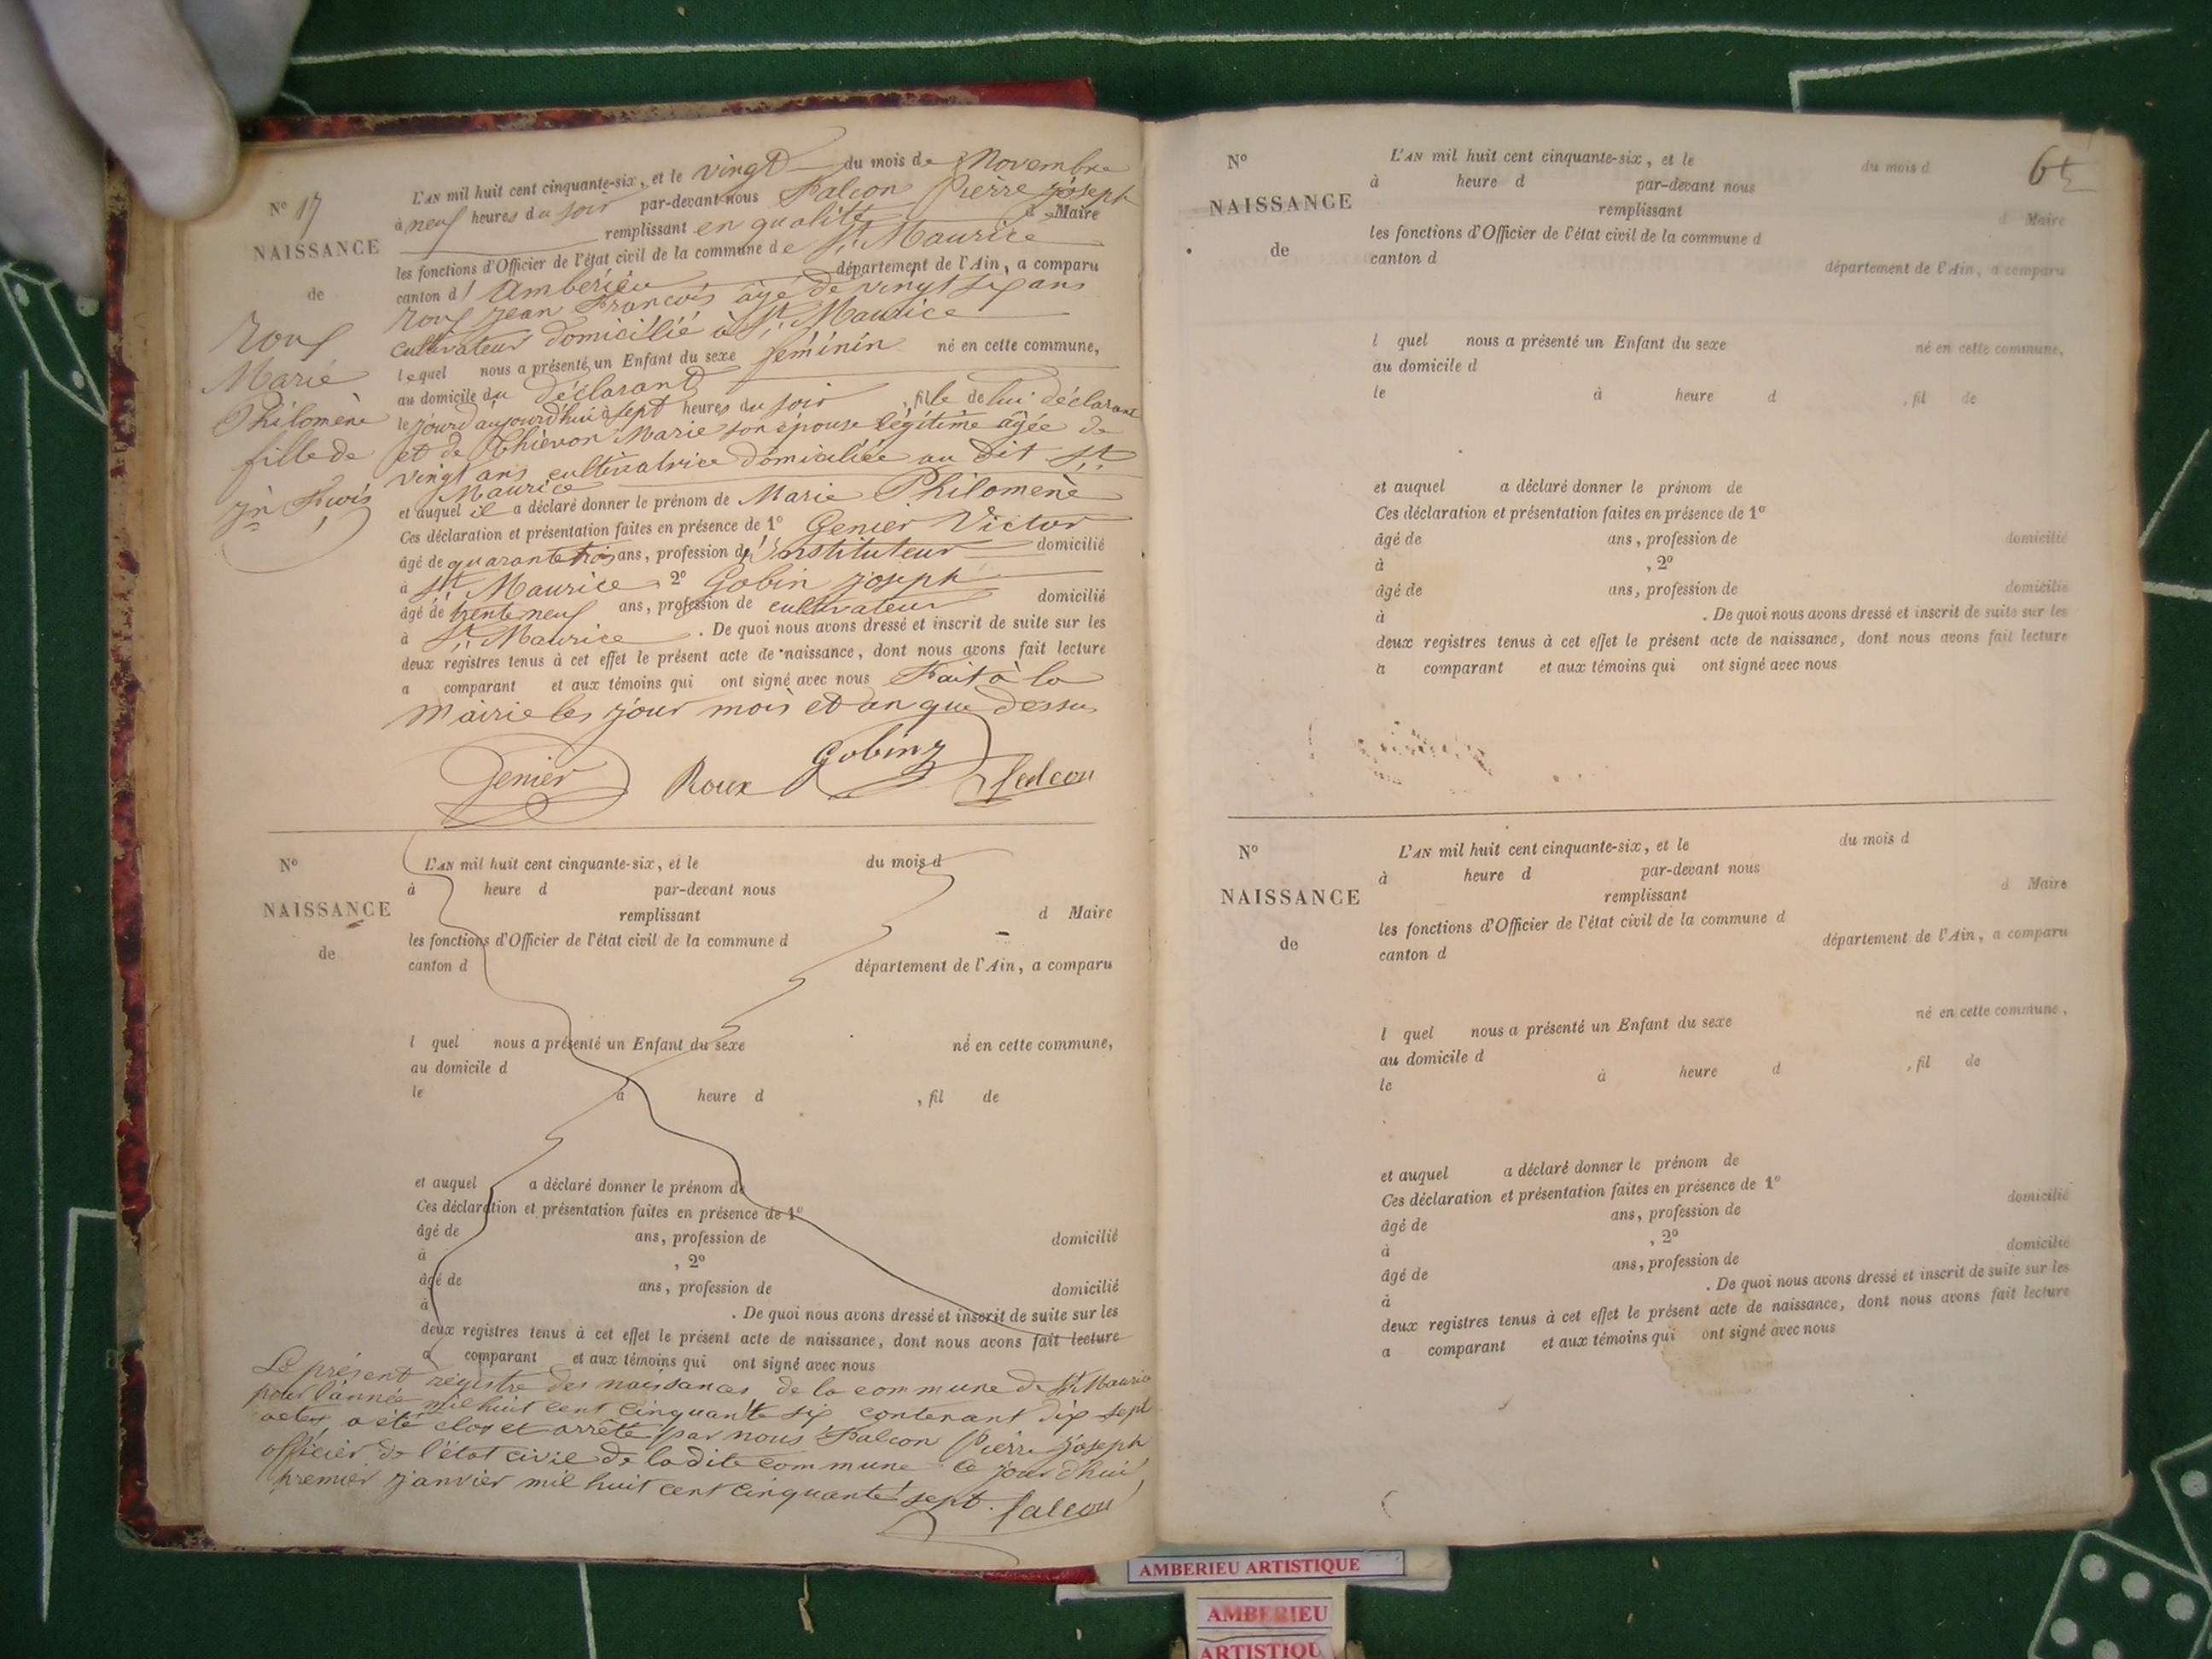 N° 17
NAISSANCE
de
Roux
Marie
Philomène
fille de
Jn Fcois
L'AN mil huit cent cinquante-six, et le vingt du mois de Novembre
à neuf heures du soir par-devant nous Falcon Pierre Joseph
remplissant en qualité d Maire
les fonctions d'Officier de l'état civil de la commune de St. Maurice
canton d' Ambérieu département de l'Ain, a comparu
Roux Jean François âgé de vingt six ans
cultivateur domicilié à St. Maurice
lequel nous a présenté un Enfant du sexe féminin né en cette commune,
au domicile du déclarant
le jour d'aujourd'hui à sept heures du soir, fille de lui déclarant
et de Thievon Marie son épouse légitime âgée de
vingt ans cultivatrice domiciliée au dit St.
Maurice
et auquel il a déclaré donner le prénom de Marie Philomène
Ces déclaration et présentation faites en présence de 1° Genier Victor
âgé de quarante trois ans, profession d'Instituteur domicilié
à St. Maurice, 2° Gobin Joseph
âgé de trente neuf ans, profession de cultivateur domicilié
à St. Maurice. De quoi nous avons dressé et inscrit de suite sur les
deux registres tenus à cet effet le présent acte de naissance, dont nous avons fait lecture
a comparant et aux témoins qui ont signé avec nous Fait à la
mairie les jour mois et an que dessus
Genier Roux Gobin J Falcon
N°
NAISSANCE
de
L'AN mil huit cent cinquante-six, et le du mois d
à heure d par-devant nous
remplissant d Maire
les fonctions d'Officier de l'état civil de la commune d
canton d département de l'Ain, a comparu
l quel nous a présenté un Enfant du sexe né en cette commune,
au domicile d
le à heure d , fil de
et auquel a déclaré donner le prénom de
Ces déclaration et présentation faites en présence de 1°
âgé de ans, profession de domicilié
à , 2°
âgé de ans, profession de domicilié
à . De quoi nous avons dressé et inscrit de suite sur les
deux registres tenus à cet effet le présent acte de naissance, dont nous avons fait lecture
a comparant et aux témoins qui ont signé avec nous
Le présent registre des naissances de la commune de St. Maurice
pour l'année mil huit cent cinquante six contenant dix sept
actes a été clos et arrêté par nous Falcon Pierre Joseph
officier de l'état civil de ladite commune ce jour d'hui
premier janvier mil huit cent cinquante sept. Falcon
N°
NAISSANCE
de
L'AN mil huit cent cinquante-six, et le du mois d
à heure d par-devant nous
remplissant d Maire
les fonctions d'Officier de l'état civil de la commune d
canton d département de l'Ain, a comparu
l quel nous a présenté un Enfant du sexe né en cette commune,
au domicile d
le à heure d , fil de
et auquel a déclaré donner le prénom de
Ces déclaration et présentation faites en présence de 1°
âgé de ans, profession de domicilié
à , 2°
âgé de ans, profession de domicilié
à . De quoi nous avons dressé et inscrit de suite sur les
deux registres tenus à cet effet le présent acte de naissance, dont nous avons fait lecture
a comparant et aux témoins qui ont signé avec nous
N°
NAISSANCE
de
L'AN mil huit cent cinquante-six, et le du mois d
à heure d par-devant nous
remplissant d Maire
les fonctions d'Officier de l'état civil de la commune d
canton d département de l'Ain, a comparu
l quel nous a présenté un Enfant du sexe né en cette commune,
au domicile d
le à heure d , fil de
et auquel a déclaré donner le prénom de
Ces déclaration et présentation faites en présence de 1°
âgé de ans, profession de domicilié
à , 2°
âgé de ans, profession de domicilié
à . De quoi nous avons dressé et inscrit de suite sur les
deux registres tenus à cet effet le présent acte de naissance, dont nous avons fait lecture
a comparant et aux témoins qui ont signé avec nous
AMBERIEU ARTISTIQUE
AMBERIEU
ARTISTIQU